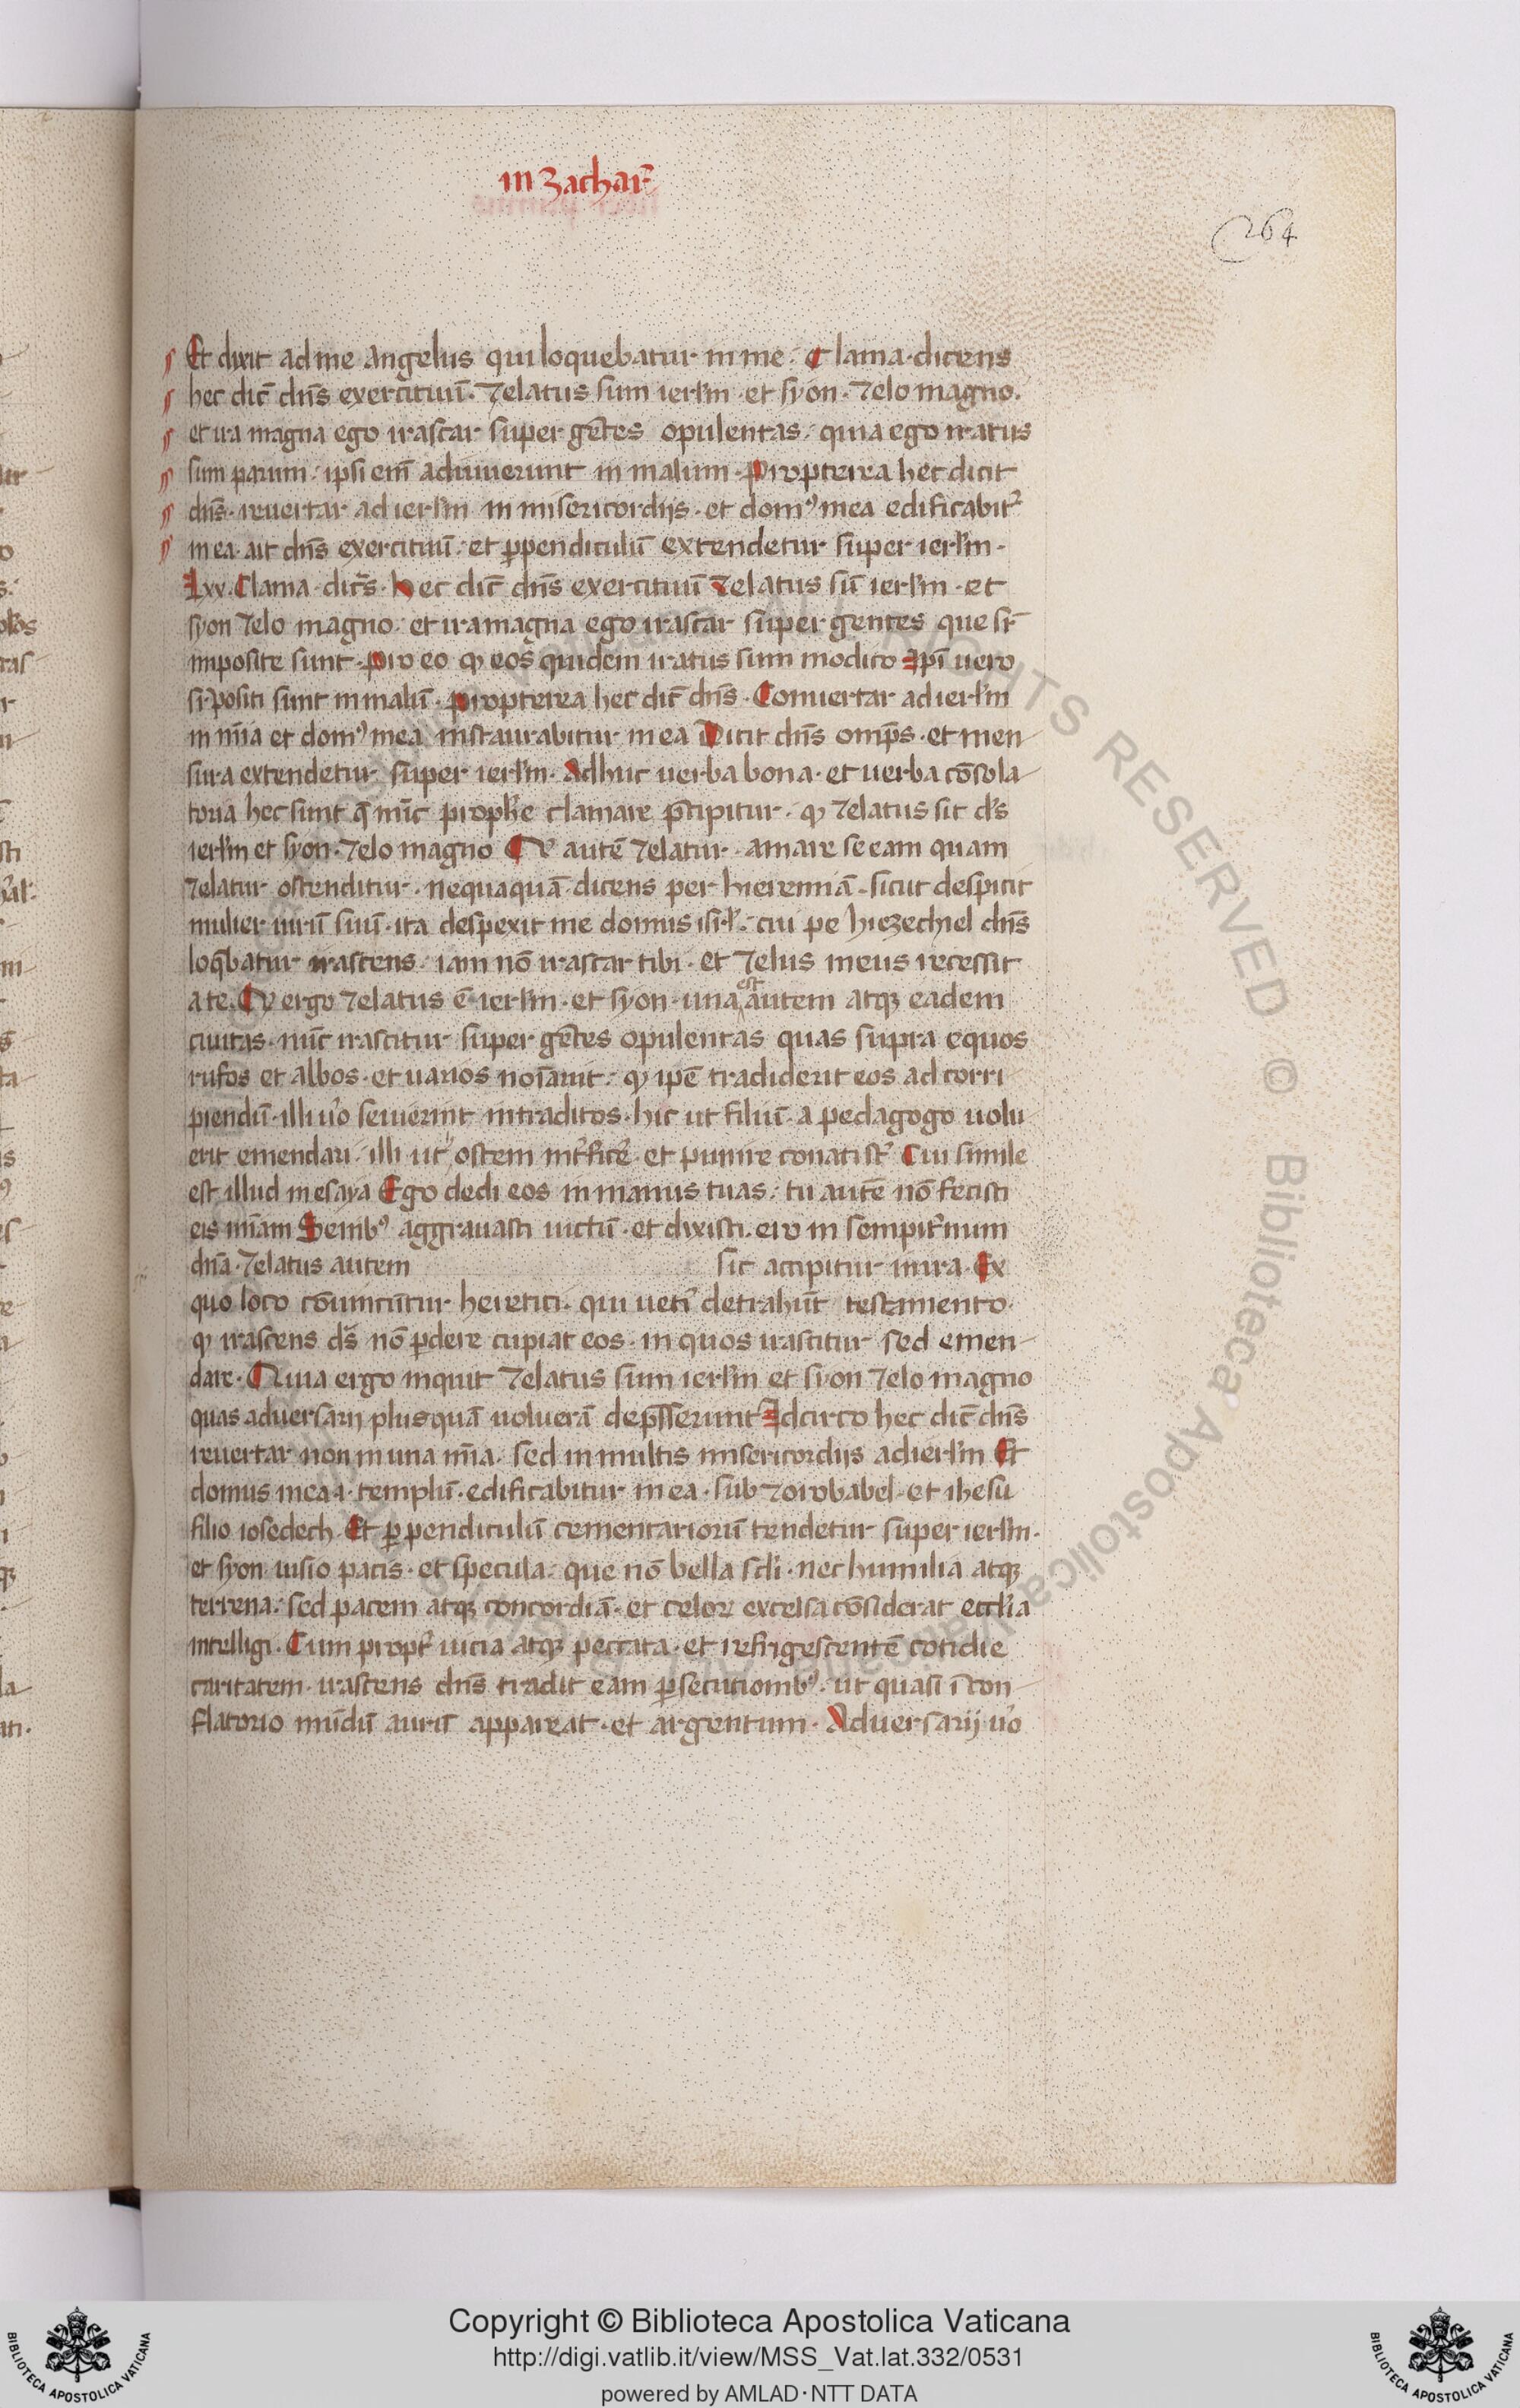 in Zachar̄
264
Et dixit ad me angelus qui loquebatur in me. Clama dicens
hec dic̄ dn̄s exercituū. Zelatus sum ierl'm et syon. Zelo magno.
et ira magna ego irascar super gētes opulentas. quia ego iratus
sum parum. ipsi em̄ adiuverunt in malum. Propterea hec dicit
dn̄s. revertar ad ierl'm in misericordiis. et domꝰ mea edificabit᷑
in ea. ait dn̄s exercituū. et ꝑpendiculū extendetur super ierl'm.
Lxx. Clama dicēs. Hec dic̄ dn̄s exercituū Zelatus sū ierl'm. et
syon Zelo magno. et ira magna ego irascar super gentes que st̄
imposite sunt. Pro eo ꝙ eos quidem iratus sum modico Ipī vero
sīpositi sunt in malū. Propterea hec dic̄ dn̄s. Convertar ad ierl'm
in mīa et domꝰ mea instaurabitur in ea Dicit dn̄s omp̄s. et men
sura extendetur super ierl'm. Adhuc verba bona. et verba cōsola
toria hec sunt q̄ nūc prophe clamare p̄cipitur. ꝙ Zelatus sit ds̄
ierl'm et syon. Zelo magno Qui autē Zelatur. amare se eam quam
Zelatur ostenditur. nequaquā dicens per hieremiā. sicut despicit
mulier virū suū. ita despexit me domus isr'l. cui pe hiezechiel dn̄s
loq̄batur irascens. iam nō irascar tibi. et Zelus meus recessit
a te. Qui ergo Zelatus ē ierl'm. et syon. una est autem atqꝫ eadem
civitas. nūc irascitur super gētes opulentas quas supra equos
rufos et albos. et varios noīavit. ꝙ ipē tradiderit eos ad corri
piendū. illi vo sevierint in traditos. hic ut filiū a pedagogo volu
erit emendari. illi ut ostem int̄ficē. et punire conati st̄ Cui simile
est illud in esaya Ego dedi eos in manus tuas. tu autē nō fecisti
eis mīam Senibꝰ aggravasti victū. et dixisti. ero in sempit̄num
dn̄a. Zelatus autem sic accipitur in ira. Ex
quo loco cōvincūtur heretici. qui veti detrahūt testamento.
ꝙ irascens ds̄ nō ꝑdere cupiat eos. in quos irascitur sed emen
dare. Quia ergo inquit Zelatus sum ierl'm et syon Zelo magno
quas adversarii plusquā volverā dep̄sserunt Idcirco hec dic̄ dn̄s
revertar non in una mīa. sed in multis misericordiis ad ierl'm Et
domus mea .i. templū. edificabitur in ea. sub Zorobabel. et ihesu
filio iosedech. Et ꝑpendiculū cementariorū tendetur super ierl'm.
et syon visio pacis. et specula. que nō bella scl'i. nec humilia atqꝫ
terrena. sed pacem atqꝫ concordiā. et celoꝝ excelsa cōsiderat eccl'ia
intelligi. Cum propt̄ vicia atqꝫ peccata. et refrigescentē cotidie
caritatem. irascens dn̄s tradit eam ꝑsecutionibꝰ. ut quasi ī con
flatorio mūdū aurū appareat. et argentum. Adversarii vo
Copyright © Biblioteca Apostolica Vaticana
http://digi.vatlib.it/view/MSS_Vat.lat.332/0531
powered by AMLAD·NTT DATA